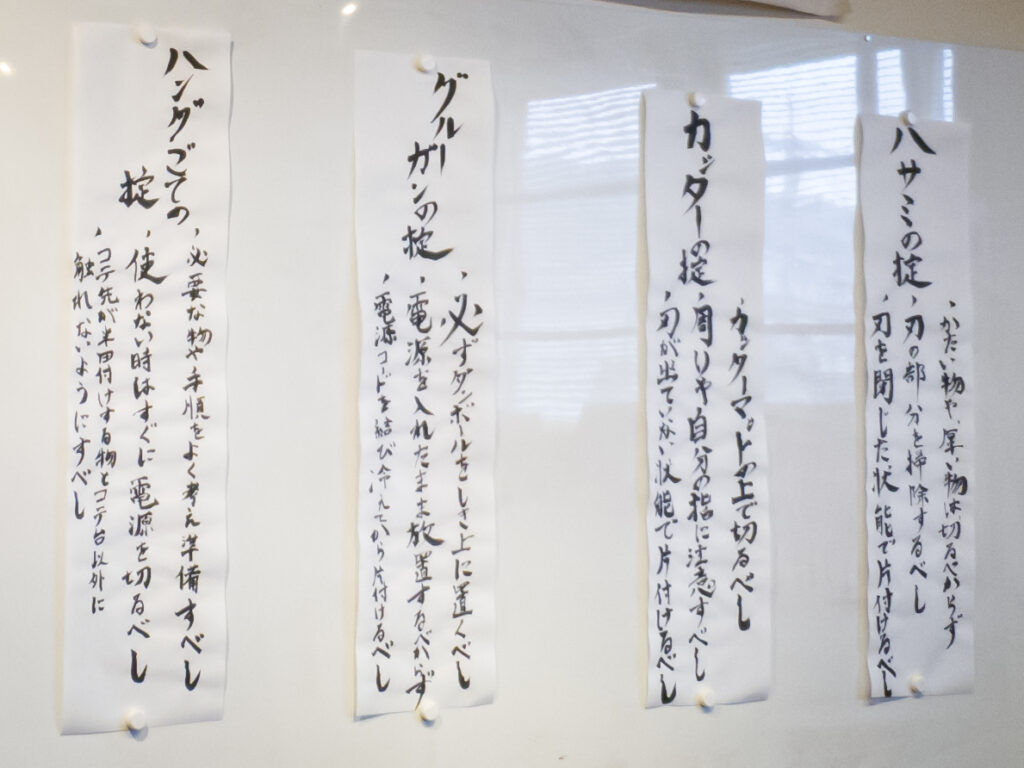 ハサミの掟
・かたい物や、厚い物は切るべからず
・刃の部分を掃除するべし
・刃を閉じた状能で片付けるべし
カッターの掟
・カッターマットの上で切るべし
・周りや自分の指に注意すべし
・刃が出ていない状能で片付けるべし
グルーガンの掟
・必ずダンボールをしき上に置くべし
・電源を入れたまま放置するべからず
・電源コードを結び冷えてから片付けるべし
ハンダごての
掟
・必要な物や手順をよく考え準備すべし
・使わない時はすぐに電源を切るべし
・コテ先が半田付けする物とコテ台以外に
触れないようにすべし